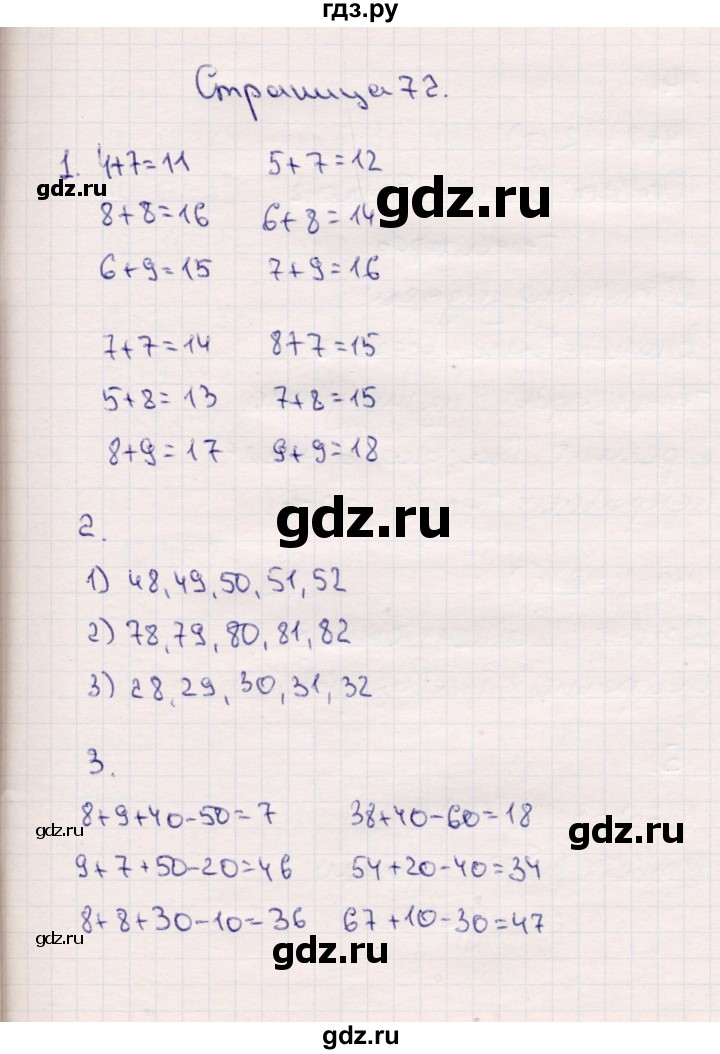 гдз.ру
Страница 72.
1. 4+7=11 5+7=12
gdz.ru
gdz.ru
8+8=16 6+8=14
6+9=15 7+9=16
7+7=14 8+7=15
5+8=13 7+8=15
8+9=17 9+9=18
gdz.ru
2.
1) 48,49,50,51,52
2) 78,79,80,81,82
3) 28,29,30,31,32
3.
8+9+40-50=7 38+40-60=18
gdz.ru
gdz.ru
9+7+50-20=46 54+20-40=34
8+8+30-10=36 67+10-30=47
gdz.ru
gdz.ru
gdz.ru